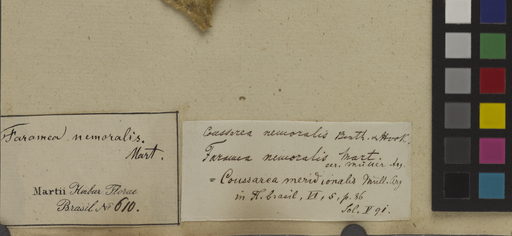 Faramea nemoralis.
Mart.
Martii Herbar. Florae
Brasil. No 610.
Coussarea nemoralis Benth. & Hook.
Faramea nemoralis Mart.
Müller Arg
= Coussarea meridionalis Müll. Arg
in Fl. brasil, VI, 5, p. 86